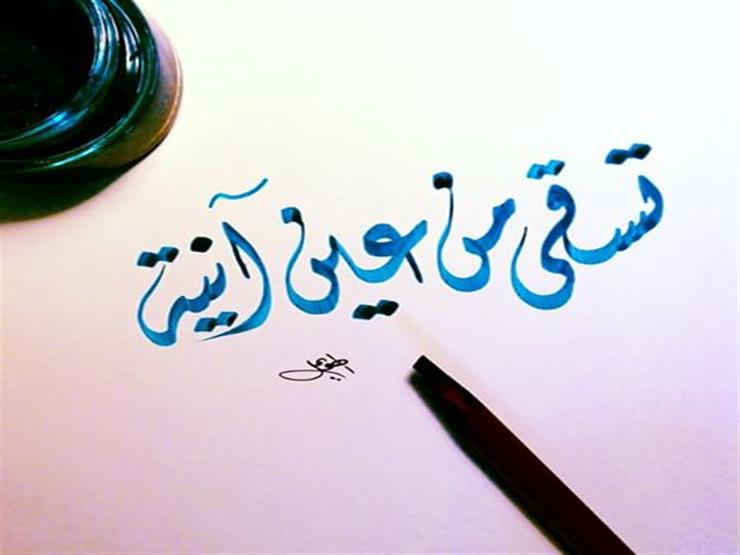 تسقى من عين آنية